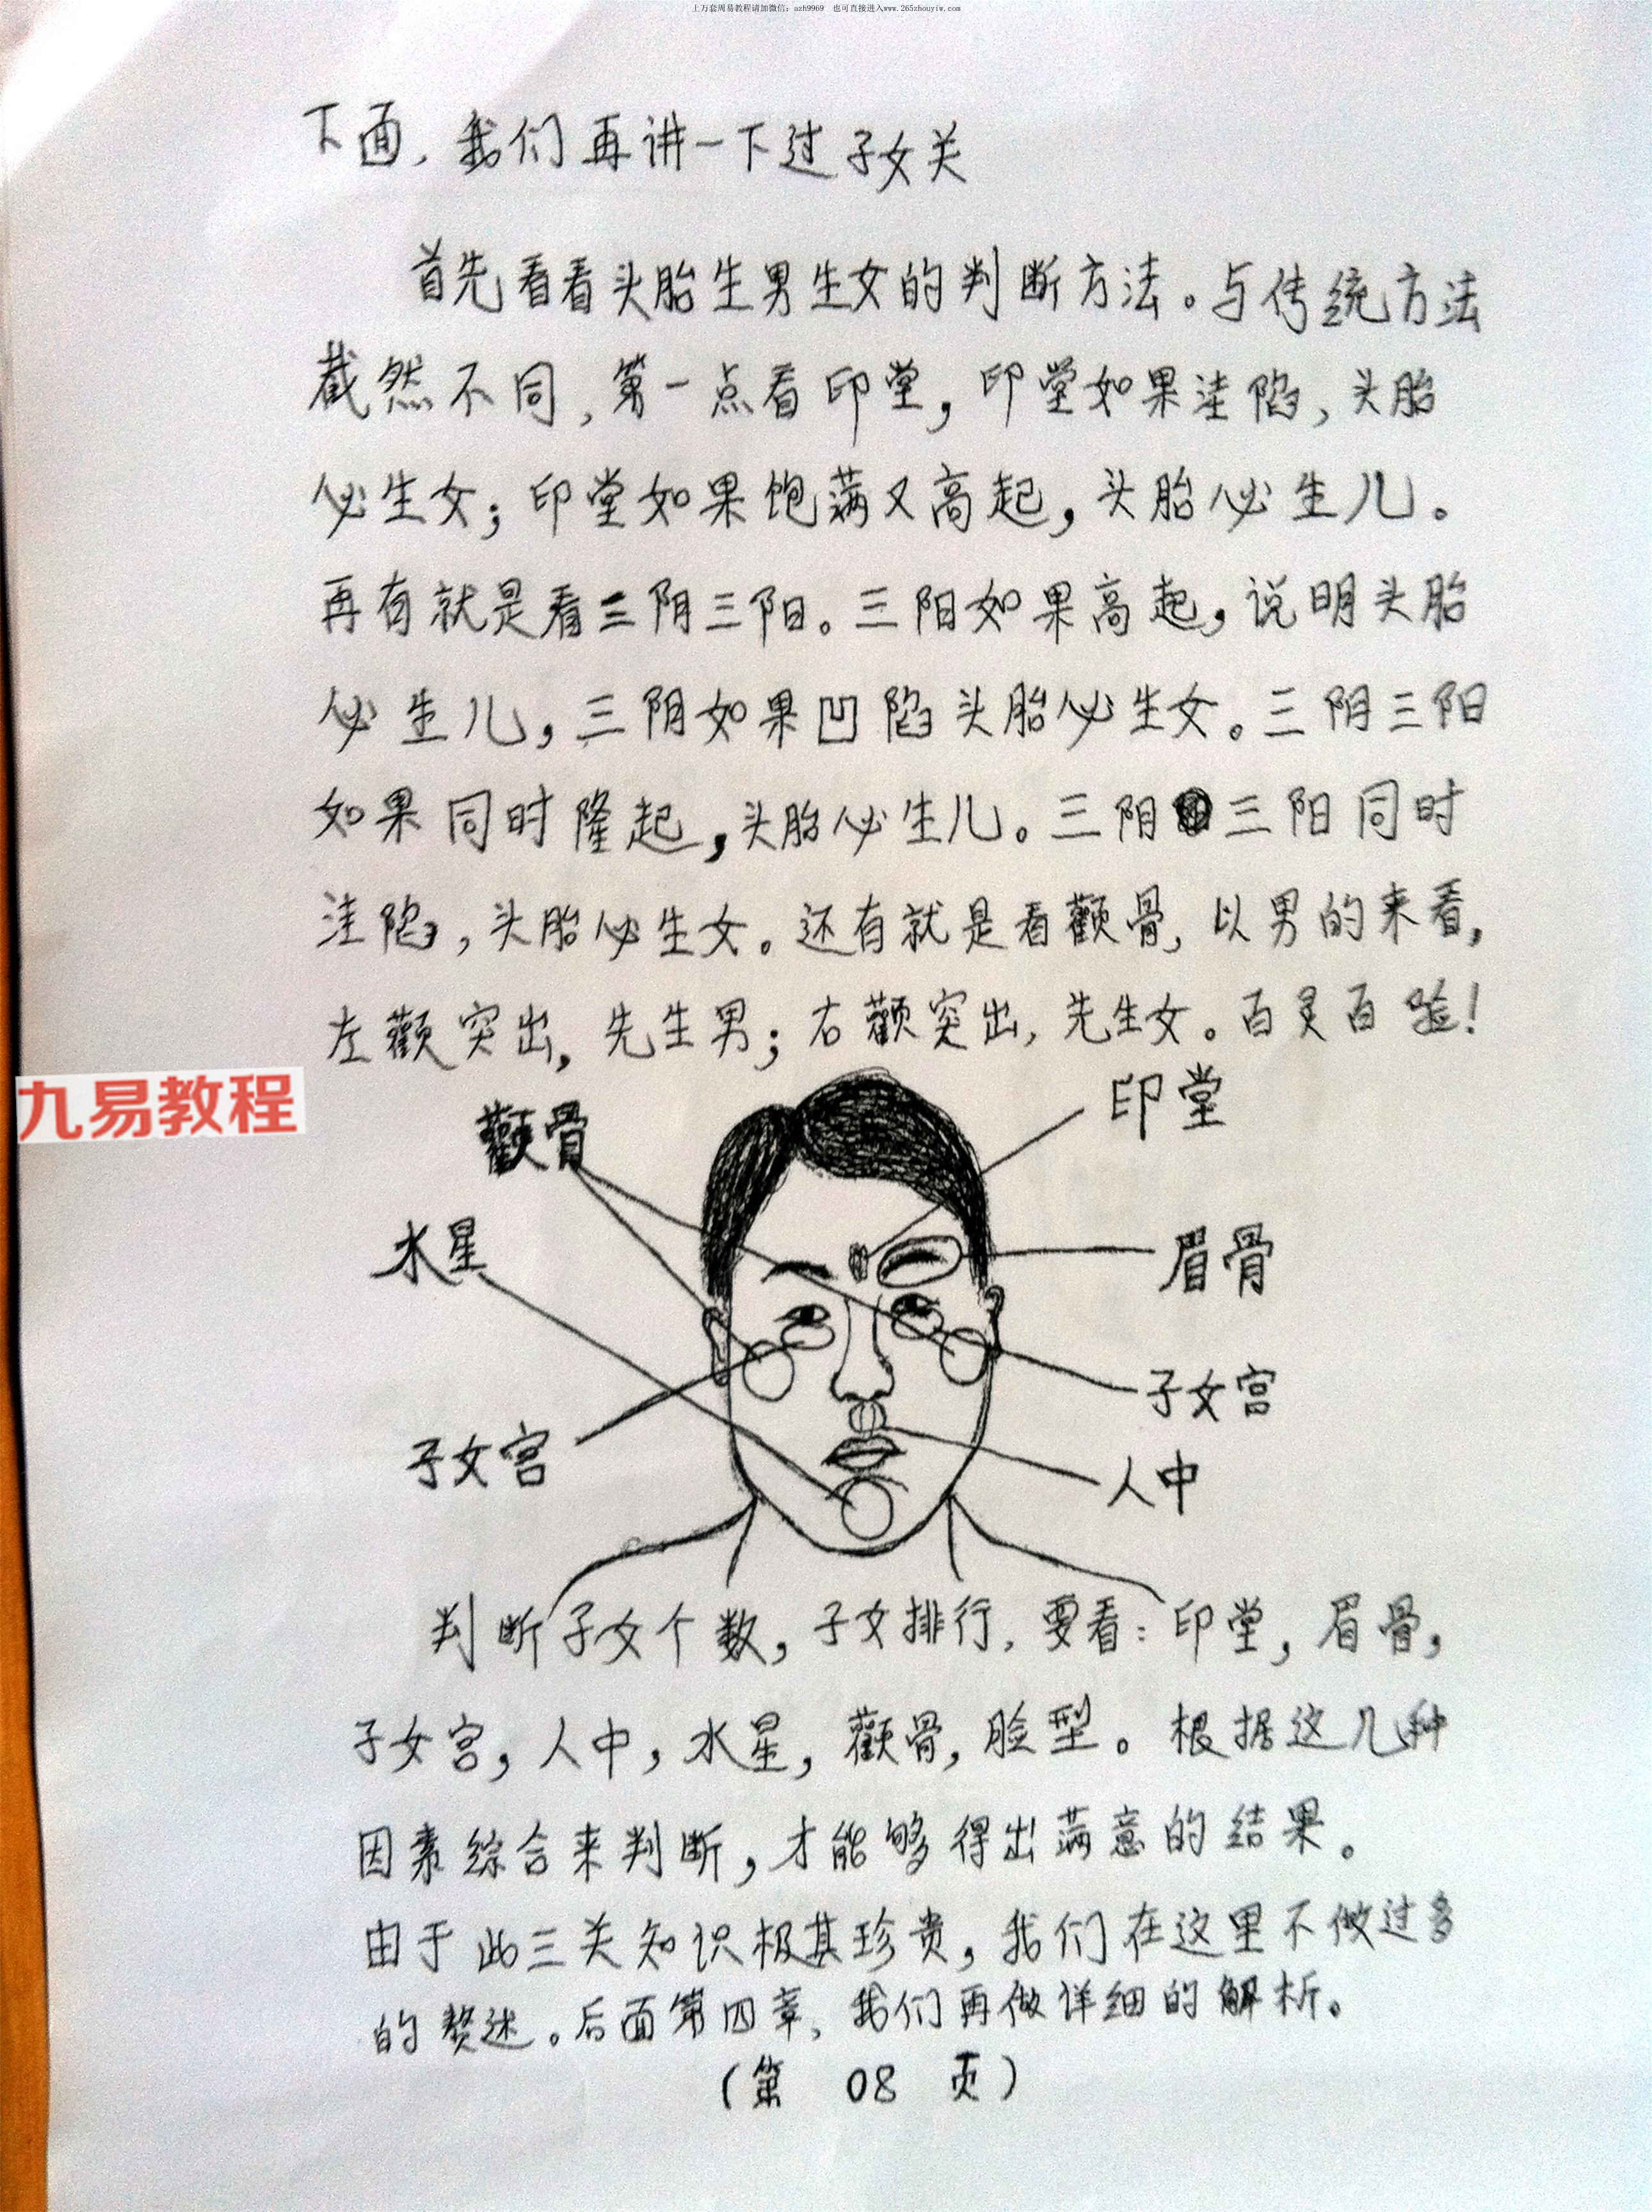 上万套周易教程请加微信：azh9969 也可直接进入www.265zhouyiw.com
下面，我们再讲一下过子女关
首先看看头胎生男生女的判断方法。与传统方法
截然不同，第一点看印堂，印堂如果洼陷，头胎
必生女；印堂如果饱满又高起，头胎必生儿。
再有就是看三阴三阳。三阳如果高起，说明头胎
必生儿，三阴如果凹陷头胎必生女。三阴三阳
如果同时隆起，头胎必生儿。三阳三阳同时
洼陷，头胎必生女。还有就是看颧骨，以男的来看，
左颧突出，先生男；右颧突出，先生女。百灵百验！
九易教程
颧骨
印堂
水星
眉骨
子女宫
子女宫
人中
判断子女个数，子女排行，要看：印堂，眉骨，
子女宫，人中，水星，颧骨，脸型。根据这几种
因素综合来判断，才能够得出满意的结果。
由于此三关知识极其珍贵，我们在这里不做过多
的赘述。后面第四章，我们再做详细的解析。
（第 08 页）